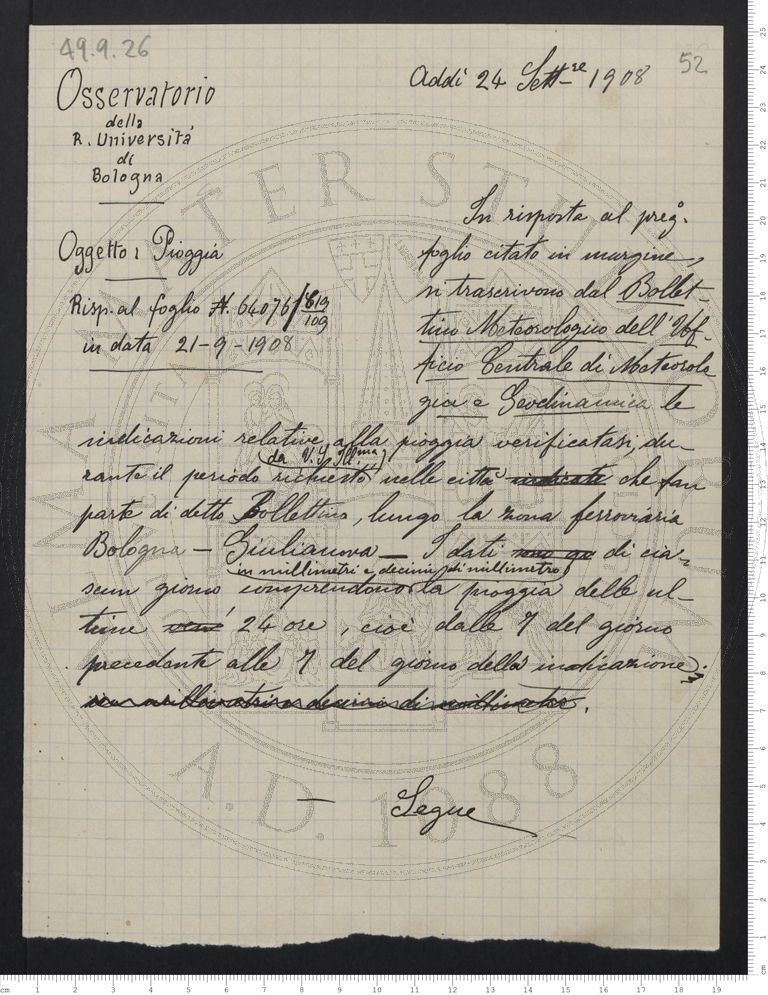 49.9.26
52
Osservatorio
della
R. Università
di
Bologna
Addì 24 Sett.re 1908
Oggetto: Pioggia
Risp. al foglio N. 64076/
109
in data 21-9-1908
In risposta al preg.
foglio citato in margine,
si trascrivono dal Bollet-
tino Meteorologico dell'Uf-
ficio Centrale di Meteorolo
gia e Geodinamica le
indicazioni relative alla pioggia verificatasi, du-
rante il periodo richiesto (da V. S. Ill.ma) nelle città indicate che fan
parte di detto Bollettino, lungo la zona ferroviaria
Bologna — Giulianova — I dati di cia-
scun giorno comprendono (in millimetri e decimi di millimetro) la pioggia delle ul-
time 24 ore, cioè dalle 7 del giorno
precedente alle 7 del giorno della indicazione.
in millimetri e decimi di millimetro.
— Segue
ALMA MATER STUDIORUM
A.D. 1088